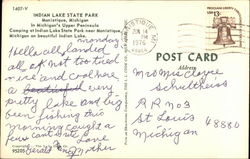 1407-V
INDIAN LAKE STATE PARK
Manistique, Michigan
in Michigan's Upper Peninsula
Camping at Indian Lake State Park near Manistique,
Michigan on beautiful Indian Lake.
JUN 14
PM
1976
13c
POST CARD
Address
monday
Hello all, landed
all of not too tired
nice and cool here
a beautiful very
pretty lake and big
been fishing this
morning caught a
Love
Mother
95205
Mr + Mrs Clare
Schultheiss
RR no 3
St Louis 48880
Michigan